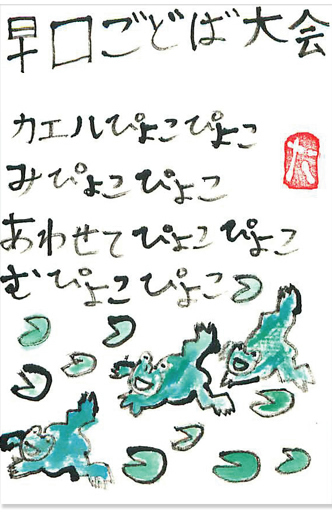 早口ごとば大会
カエルぴょこぴょこ
みぴょこぴょこ
あわせてぴょこぴょこ
むぴょこぴょこ
た